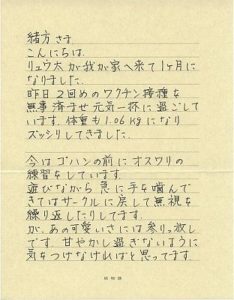 緒方さま
こんにちは、
リュウ太が我が家へ来て1ヶ月に
なりました。
昨日2回めのワクチン接種を
無事済ませ元気一杯に過ごして
います。体重も1.06kgになり
ズッシリしてきました。
今はゴハンの前にオスワリの
練習をしています。
遊びながら急に手を噛んで
きてはサークルに戻して無視を
繰り返したりしてます。
が、あの可愛いさには参りっ放し
です。甘やかし過ぎないように
気をつけなければと思ってます。